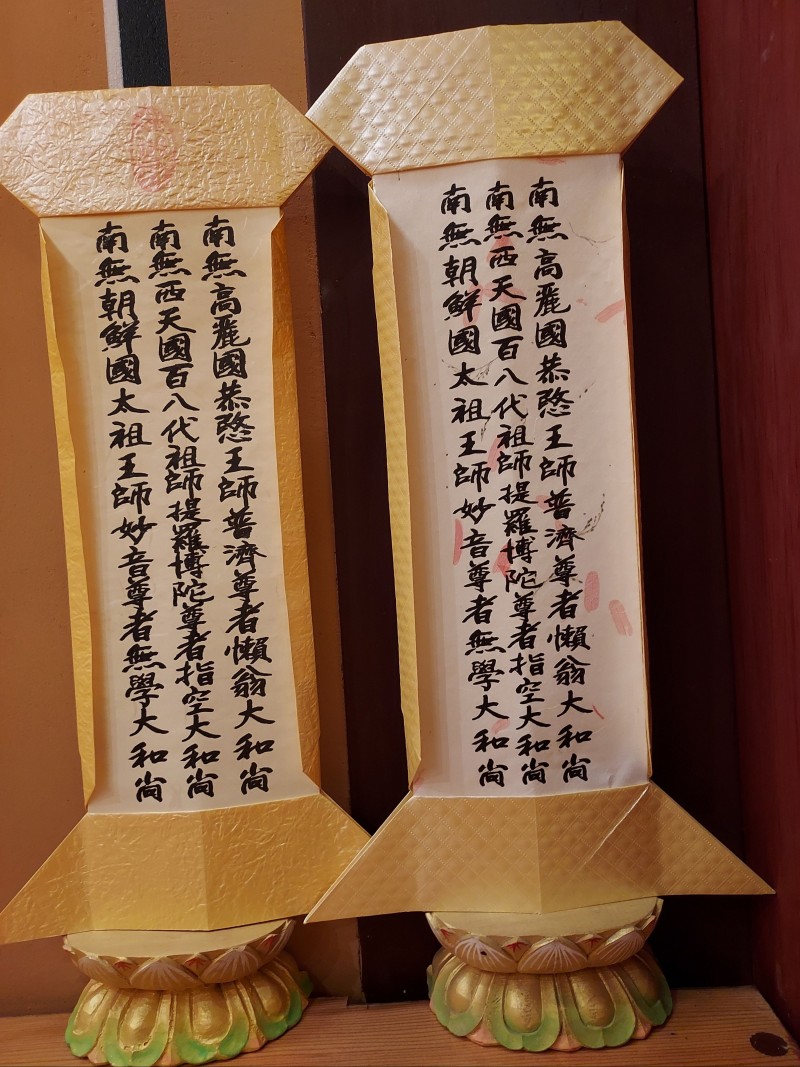 南無高麗國恭愍王師普濟尊者懶翁大和尚
南無西天國百八代祖師提羅博陀尊者指空大和尚
南無朝鮮國太祖王師妙音尊者無學大和尚
南無高麗國恭愍王師普濟尊者懶翁大和尚
南無西天國百八代祖師提羅博陀尊者指空大和尚
南無朝鮮國太祖王師妙音尊者無學大和尚